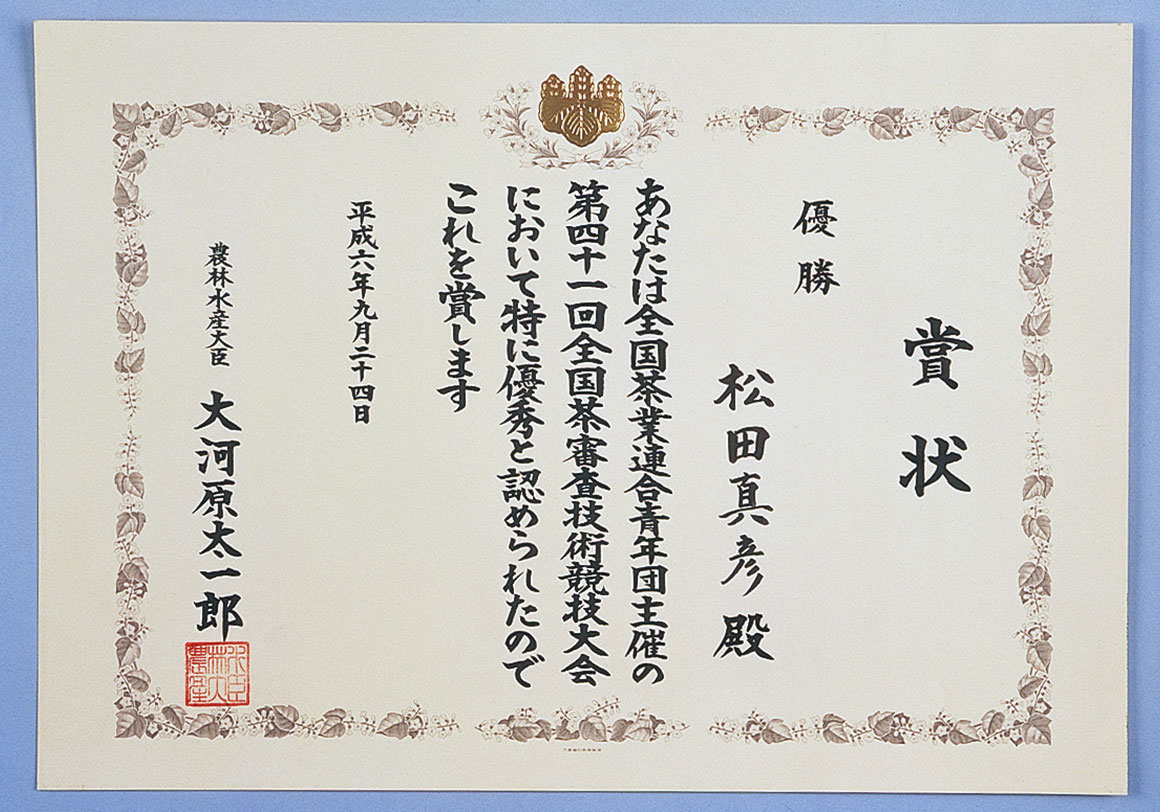 賞状
優勝
松田真彦殿
あなたは全国茶業連合青年団主催の
第四十一回全国茶審査技術競技大会
において特に優秀と認められたので
これを賞します
平成六年九月二十四日
農林水産大臣 大河原太一郎